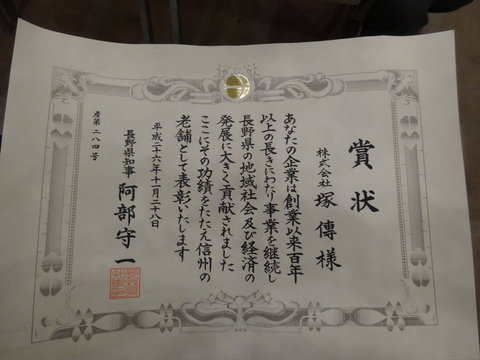 賞状
株式会社 塚傳様
あなたの企業は創業以来百年
以上の長きにわたり事業を継続し
長野県の地域社会及び経済の
発展に大きく貢献されました
ここにその功績をたたえ信州の
老舗として表彰いたします
平成二十六年十一月二十八日
長野県知事 阿部守一
産第二八四号